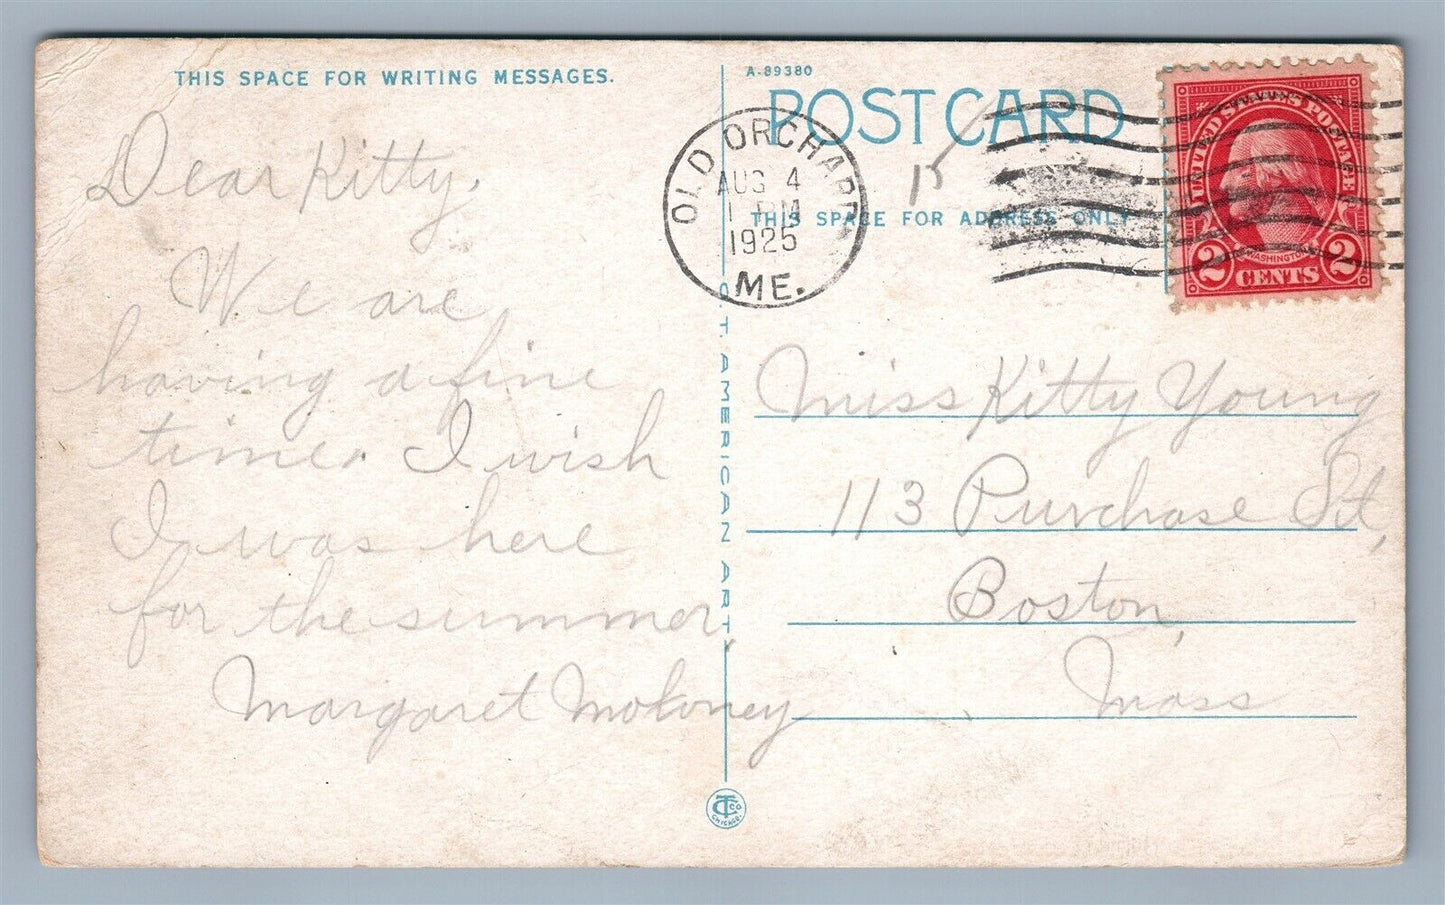 THIS SPACE FOR WRITING MESSAGES.
Dear Kitty,
We are
having a fine
time. I wish
I was here
for the summer,
Margaret Moloney
A-89380
POST CARD
THIS SPACE FOR ADDRESS ONLY.
OLD ORCHARD
AUG 4
1 PM
1925
ME.
15
UNITED STATES POSTAGE
WASHINGTON
2 CENTS 2
C. T. AMERICAN ART
Miss Kitty Young
113 Purchase St,
Boston,
Mass
CT CO
CHICAGO.